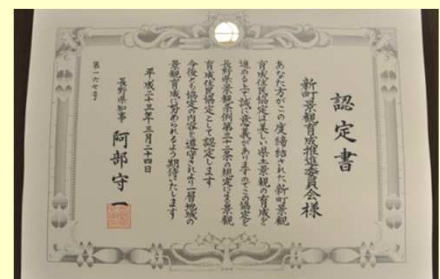 認定書
新町景観育成推進委員会様
あなた方がこの度締結された新町景観
育成住民協定は美しい県土景観の育成を
進めるうえ誠に意義がありますのでこの協定を
長野県景観条例第三十二条の規定による景観
育成住民協定として認定します
今後とも協定の内容を遵守されより一層地域の
景観育成に努められるよう期待いたします
平成二十三年三月二十四日
長野県知事 阿部守一